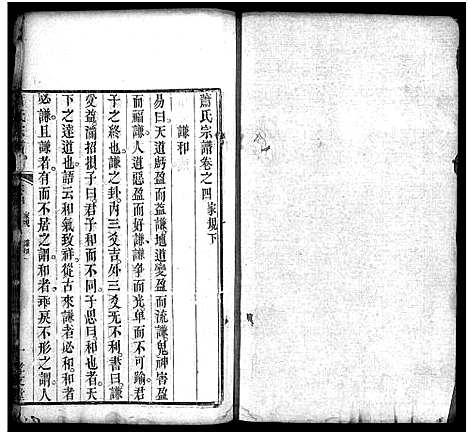 蕭氏宗譜卷之四家規下
謙和
易曰天道虧盈而益謙地道變盈而流謙鬼神害盈
而福謙人道惡盈而好謙謙尊而光卑而不可踰君
子之終也謙之卦內三爻吉外三爻无不利書曰謙
受益滿招損子曰君子和而不同子思曰和也者天
下之達道也語云和氣致祥從古來謙者必和和者
必謙且謙者有而不居之謂和者乖戾不形之謂人